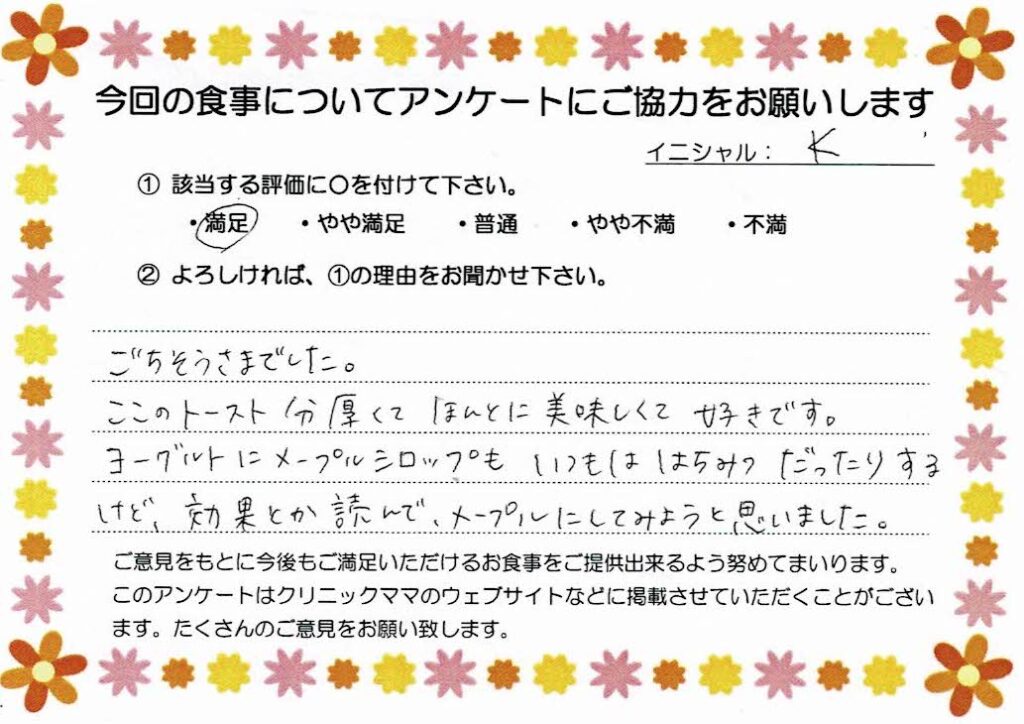 今回の食事についてアンケートにご協力をお願いします
イニシャル： K
① 該当する評価に〇を付けて下さい。
・満足 ・やや満足 ・普通 ・やや不満 ・不満
② よろしければ、①の理由をお聞かせ下さい。
ごちそうさまでした。
ここのトースト分厚くてほんとに美味しくて好きです。
ヨーグルトにメープルシロップも いつもははちみつだったりする
けど、効果とか読んで、メープルにしてみようと思いました。
ご意見をもとに今後もご満足いただけるお食事をご提供出来るよう努めてまいります。
このアンケートはクリニックママのウェブサイトなどに掲載させていただくことがござい
ます。たくさんのご意見をお願い致します。